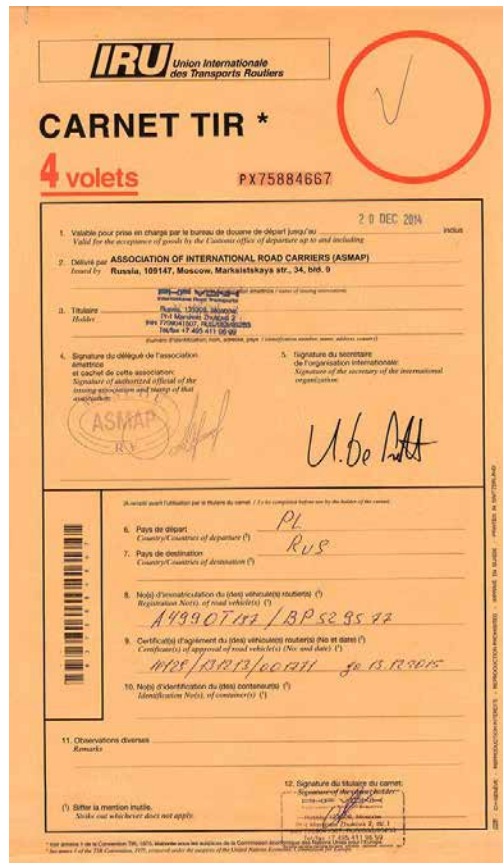 IRU Union Internationale
des Transports Routiers
CARNET TIR *
4 volets
PX75884667
20 DEC 2014
1. Valable pour prise en charge par le bureau de douane de départ jusqu'au inclus
Valid for the acceptance of goods by the Customs office of departure up to and including
2. Délivré par ASSOCIATION OF INTERNATIONAL ROAD CARRIERS (ASMAP)
Issued by Russia, 109147, Moscow, Marksistskaya str., 34, bld. 9
émettrice / name of issuing association
3. Titulaire
Holder
International Road Transports
(numéro d'identification, nom, adresse, pays / identification number, name, address, country)
4. Signature du délégué de l'association
émettrice
et cachet de cette association:
Signature of authorized official of the
issuing association and stamp of that
association:
ASMAP
5. Signature du secrétaire
de l'organisation internationale:
Signature of the secretary of the international
organization:
(A remplir avant l'utilisation par le titulaire du carnet / To be completed before use by the holder of the carnet)
6. Pays de départ PL
Country/Countries of departure (¹)
7. Pays de destination RUS
Country/Countries of destination (¹)
8. No(s) d'immatriculation du (des) véhicule(s) routier(s) (¹)
Registration No(s). of road vehicle(s) (¹)
9. Certificat(s) d'agrément du (des) véhicule(s) routier(s) (No et date) (¹)
Certificate(s) of approval of road vehicle(s) (No. and date) (¹)
10. No(s) d'identification du (des) conteneur(s) (¹)
Identification No(s). of container(s) (¹)
11. Observations diverses
Remarks
12. Signature du titulaire du carnet:
Signature of the carnet holder:
(¹) Biffer la mention inutile.
Strike out whichever does not apply.
* Voir annexe 1 de la Convention TIR, 1975, élaborée sous les auspices de la Commission économique des Nations Unies pour l'Europe.
* See annex 1 of the TIR Convention, 1975, prepared under the auspices of the United Nations Economic Commission for Europe.